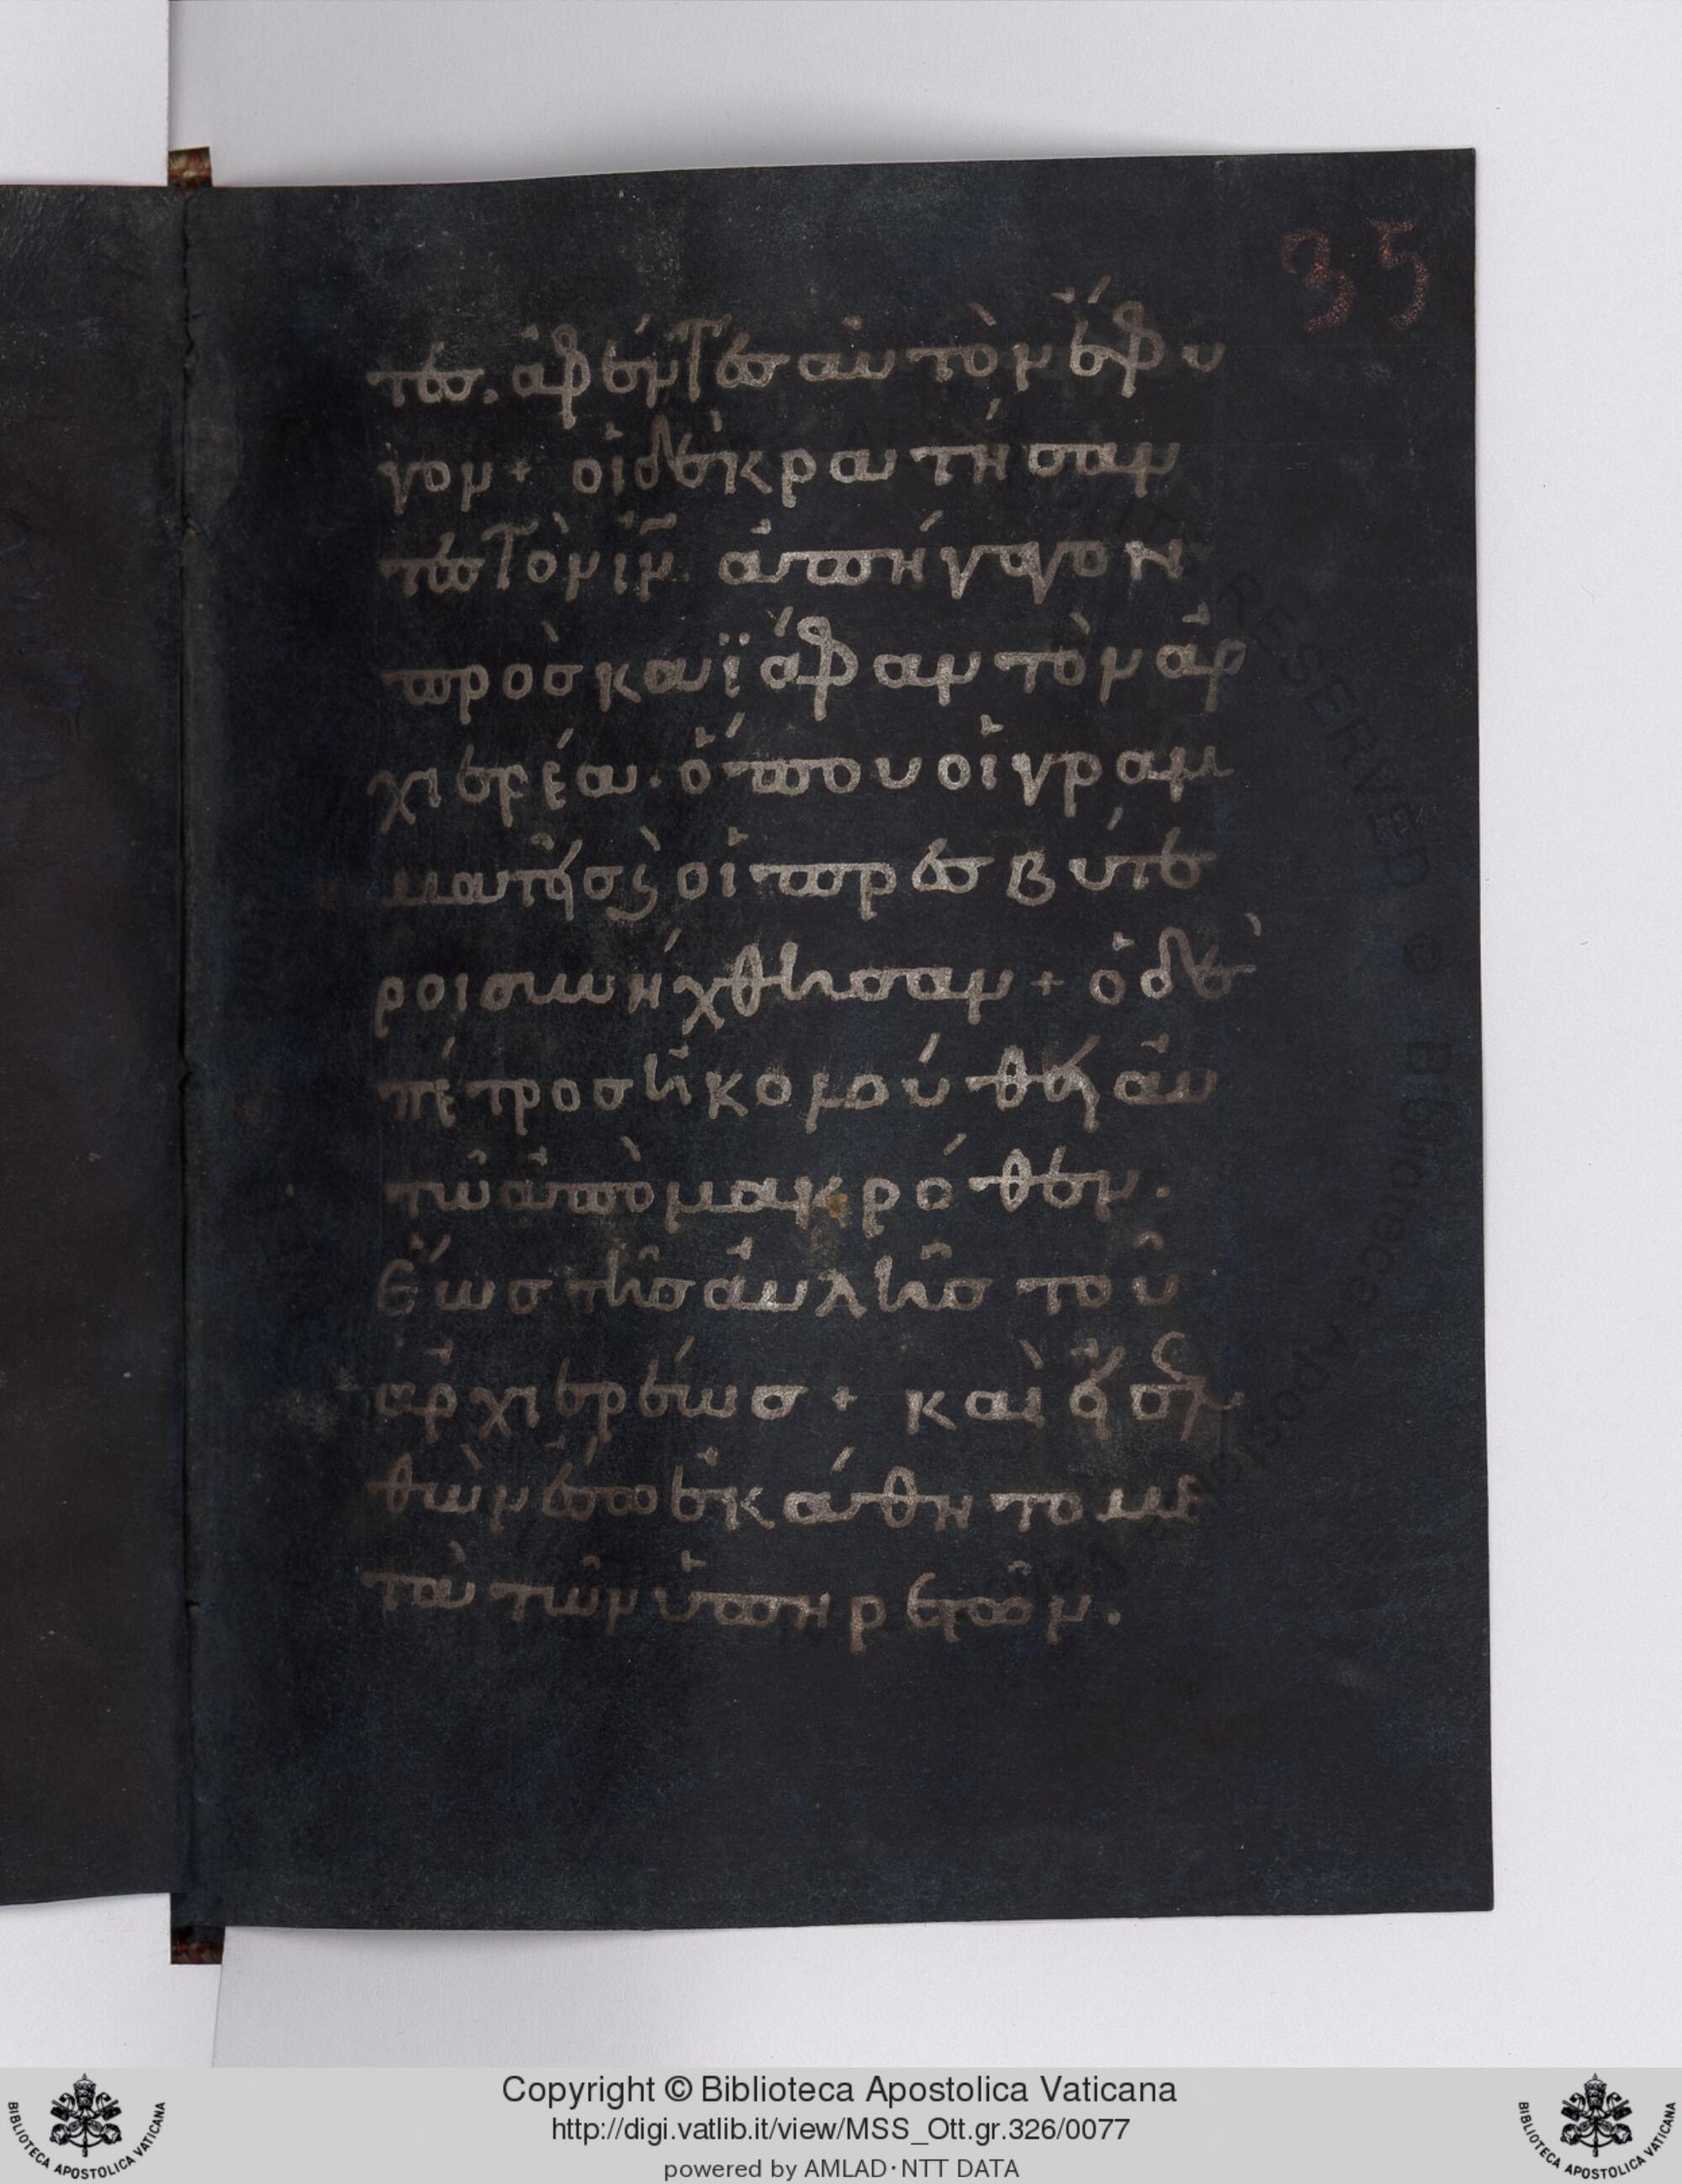 35
τες. ἀφέντες αὐτὸν ἔφυ
γον + οἱ δὲ κρατήσαν
τες τὸν ιν̅ ἀπήγαγον
πρὸς καϊάφαν τὸν ἀρ
χιερέα. ὅπου οἱ γραμ
ματεῖς ϗ οἱ πρεσβύτε
ροι συνήχθησαν + ὁ δὲ
πέτρος ἠκολούθει αὐ
τῶ ἀπὸ μακρόθεν.
ἕως τῆς αὐλῆς τοῦ
ἀρχιερέως + καὶ εἰσελ
θὼν ἔσω ἐκάθητο με
τὰ τῶν ὑπηρετῶν.
RIGHTS RESERVED © Biblioteca Apostolica Vaticana
Copyright © Biblioteca Apostolica Vaticana
http://digi.vatlib.it/view/MSS_Ott.gr.326/0077
powered by AMLAD·NTT DATA
BIBLIOTECA APOSTOLICA VATICANA
BIBLIOTECA APOSTOLICA VATICANA